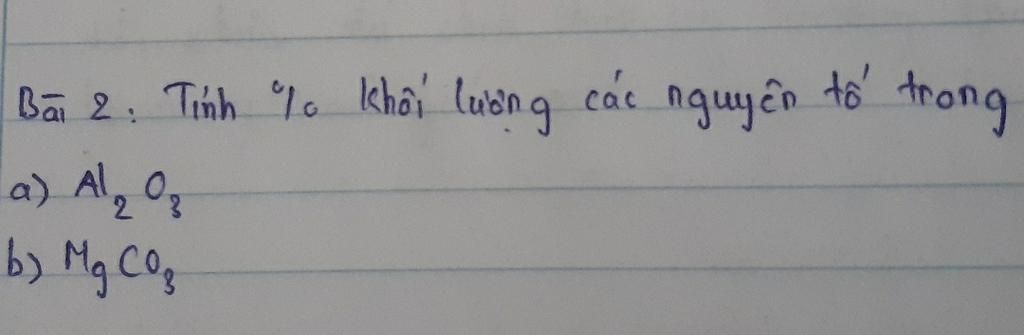 Bài 2: Tính % khối lượng các nguyên tố trong
a) Al₂O₃
b) MgCO₃